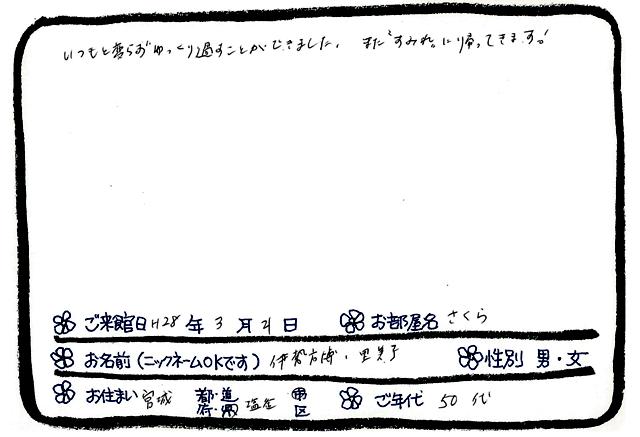 いつもと変らずゆっくり過すことができました。 また"すみれ"に帰ってきます!
ご来館日 H28 年 3 月 21 日 お部屋名 さくら
お名前(ニックネームOKです) 伊勢 ・ 里美子 性別 男・女
お住まい 宮城 都・道・府・県 塩釜 市 区 ご年代 50 代